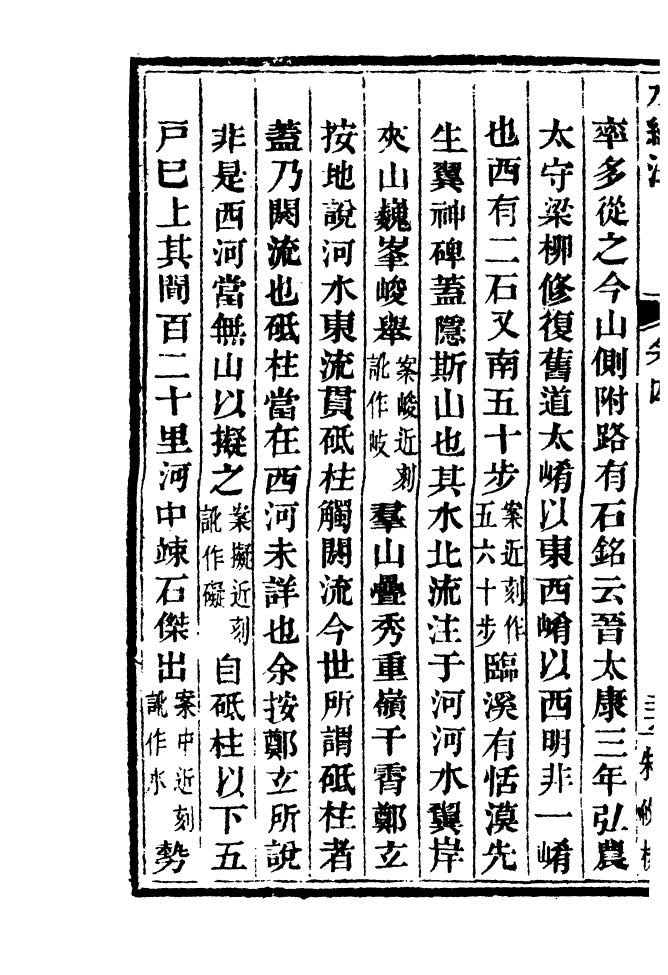 水經注 卷四
率多從之今山側附路有石銘云晉太康三年弘農
太守梁柳修復舊道太崤以東西崤以西明非一崤
也西有二石又南五十步案近刻作五六十步臨溪有恬漠先
生翼神碑蓋隱斯山也其水北流注于河河水翼岸
夾山巍峯峻舉案峻近刻訛作岐羣山疊秀重嶺干霄鄭立
按地說河水東流貫砥柱觸閼流今世所謂砥柱者
蓋乃閼流也砥柱當在西河未詳也余按鄭立所說
非是西河當無山以擬之案擬近刻訛作礙自砥柱以下五
戸巳上其間百二十里河中竦石傑出案中近刻訛作水勢